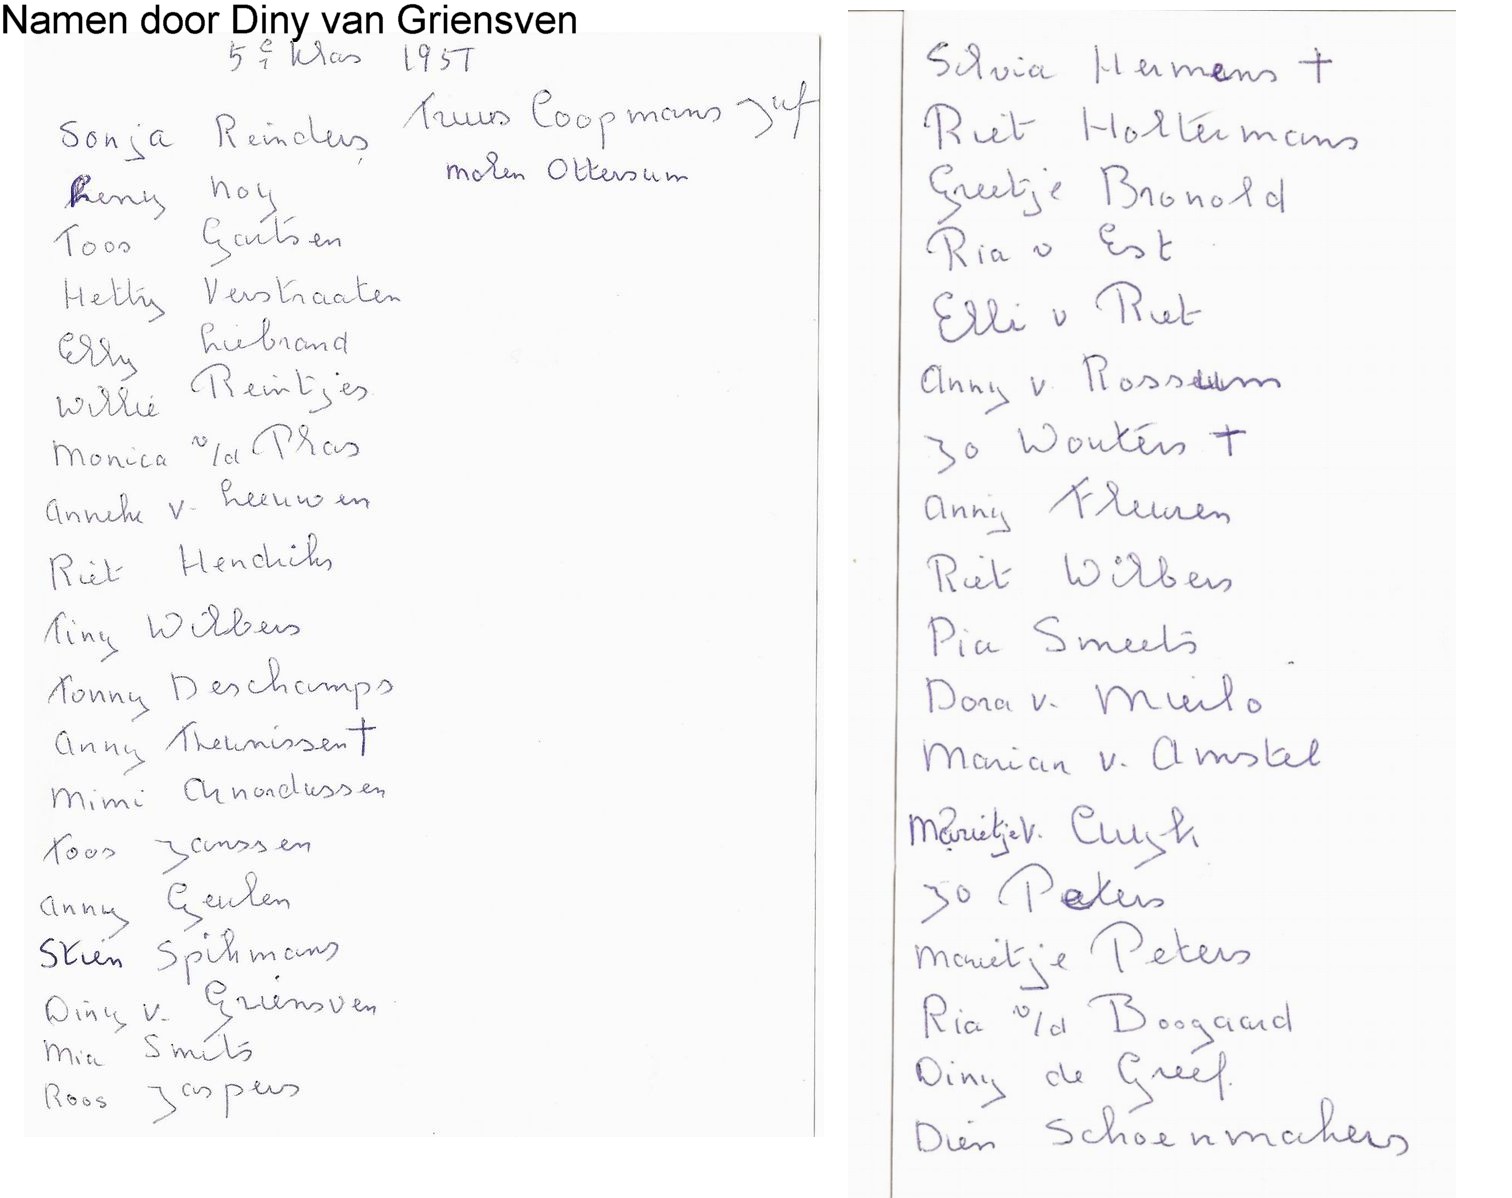 Namen door Diny van Griensven
5e klas 1957
Truus Coopmans juf
Sonja Reinders
molen Ottersum
Leny Noy
Toos Gertsen
Hetty Verstraaten
Elly Liebrand
Willie Reintjes
Monica v/d Plas
Anneke v. Leeuwen
Riet Hendriks
Tiny Wilbers
Tonny Deschamps
Anny Theunissen †
Mimi Arnordussen
Toos Janssen
Anny Geulen
Stien Spikmans
Diny v. Griensven
Mia Smits
Roos Jaspers
Silvia Hermens †
Riet Holtermans
Greetje Bronold
Ria v Est
Elli v Riet
Anny v. Rossum
Jo Wouters †
Anny Fleuren
Riet Wilbers
Pia Smeets
Dora v. Mierlo
Marian v. Amstel
Marietje v. Cuyk
Jo Peters
Marietje Peters
Ria v/d Boogaard
Diny de Greef.
Dien Schoenmakers